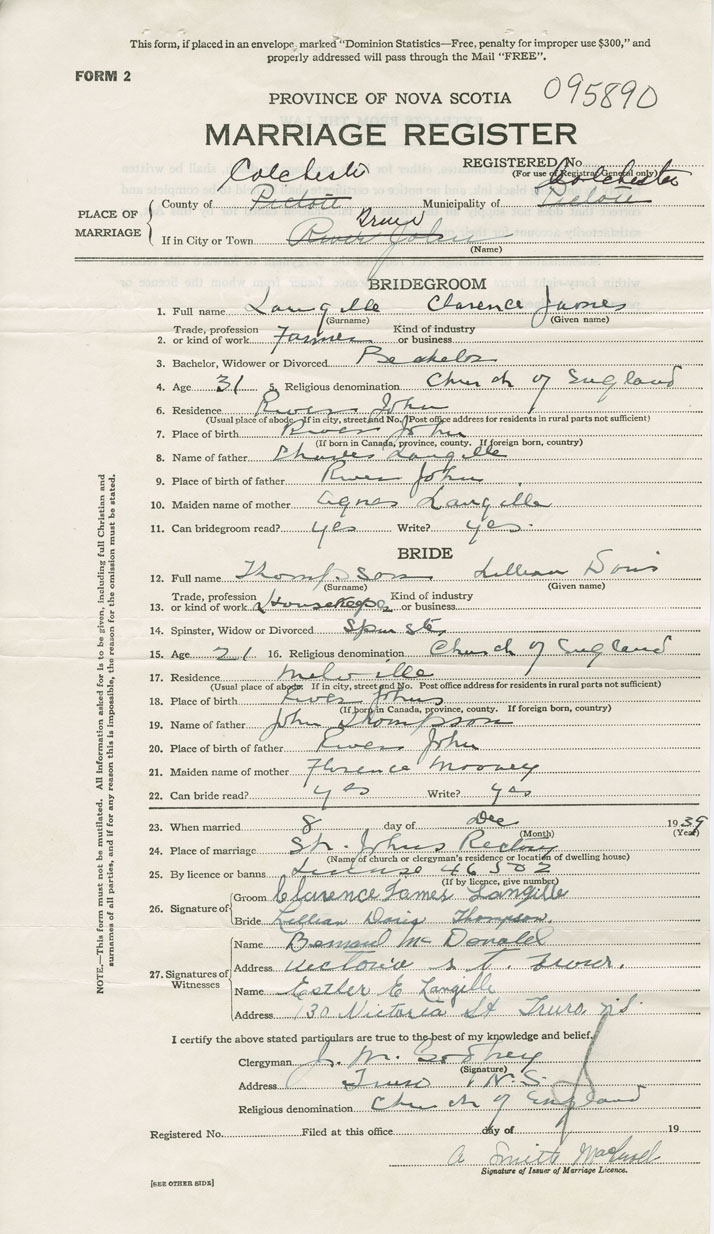 This form, if placed in an envelope, marked "Dominion Statistics—Free, penalty for improper use $300," and
properly addressed will pass through the Mail "FREE".
FORM 2
095890
PROVINCE OF NOVA SCOTIA
MARRIAGE REGISTER
REGISTERED No.
(For use of Registrar General only)
Colchester Colchester
PLACE OF MARRIAGE
County of Pictou Municipality of Pictou
Truro
If in City or Town River John
(Name)
BRIDEGROOM
1. Full name Langille Clarence James
(Surname) (Given name)
2. Trade, profession or kind of work Farmer Kind of industry or business
3. Bachelor, Widower or Divorced Bachelor
4. Age 31 5. Religious denomination Church of England
6. Residence River John
(Usual place of abode. If in city, street and No. Post office address for residents in rural parts not sufficient)
7. Place of birth River John
(If born in Canada, province, county. If foreign born, country)
8. Name of father Charles Langille
9. Place of birth of father River John
10. Maiden name of mother Agnes Langille
11. Can bridegroom read? yes Write? yes.
BRIDE
12. Full name Thompson Lillian Doris
(Surname) (Given name)
13. Trade, profession or kind of work Housekeeper Kind of industry or business
14. Spinster, Widow or Divorced Spinster
15. Age 21 16. Religious denomination Church of England
17. Residence Melville
(Usual place of abode. If in city, street and No. Post office address for residents in rural parts not sufficient)
18. Place of birth River John
(If born in Canada, province, county. If foreign born, country)
19. Name of father John Thompson
20. Place of birth of father River John
21. Maiden name of mother Florence Mooney
22. Can bride read? yes Write? yes
23. When married 8 day of Dec 1939
(Month) (Year)
24. Place of marriage St. Johns Rectory
(Name of church or clergyman's residence or location of dwelling house)
25. By licence or banns License 46502
(If by licence, give number)
26. Signature of
Groom Clarence James Langille
Bride Lillian Doris Thompson.
27. Signatures of Witnesses
Name Bernard McDonald
Address Victoria st. Truro.
Name Esther E Langille
Address 130 Victoria St Truro N.S.
I certify the above stated particulars are true to the best of my knowledge and belief.
Clergyman J. M. Godfrey
(Signature)
Address Truro N.S.
Religious denomination Church of England
Registered No. Filed at this office day of 19
A Smith
Signature of Issuer of Marriage Licence.
[SEE OTHER SIDE]
NOTE.—This form must not be mutilated. All information asked for is to be given, including full Christian and
surnames of all parties, and if for any reason this is impossible, the reason for the omission must be stated.